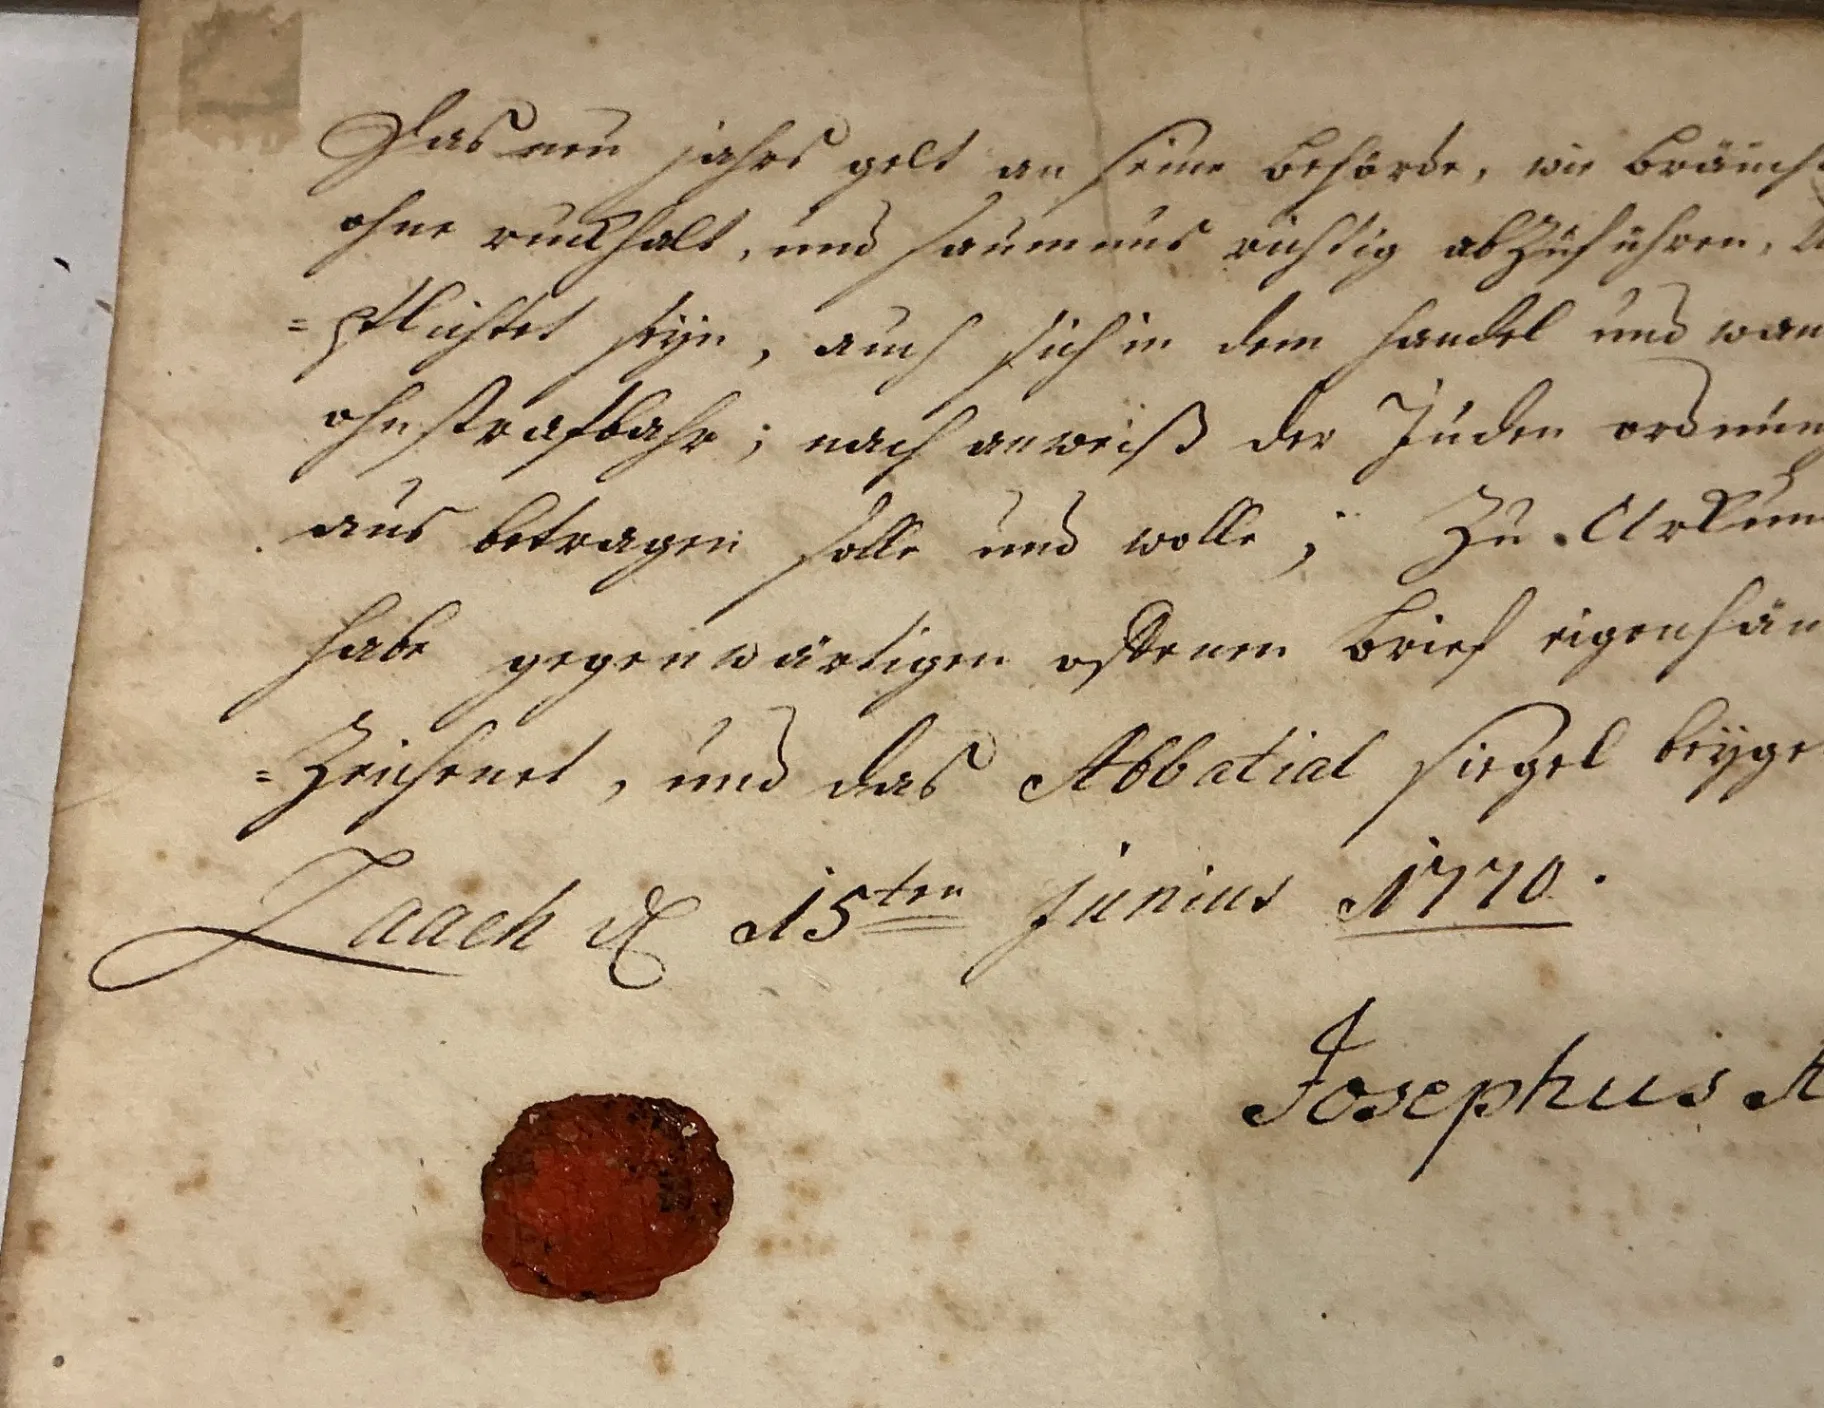 Das neu jahrs gelt an seine behörde, wie bräuch
ohne ruckhalt, und saumnus richtig abzuführen,
=pflichtet seÿn, auch sich in dem handel und wan
ohnstrafbahr; nach anweiß der Juden ordnung
aus betragen solle und wolle; Zu Urkun
habe gegenwärtigen offenen brief eigenhän
=zeichnet, und das Abbatial siegel beÿge
Laach d 15ten junius 1770.
Josephus A